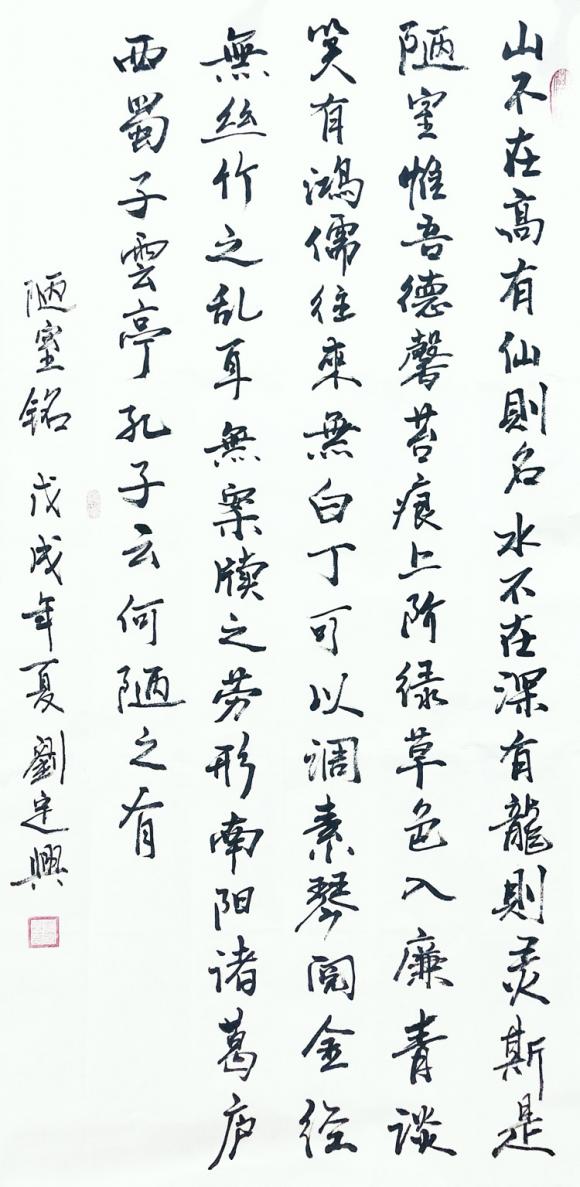 山不在高有仙則名水不在深有龍則灵斯是
陋室惟吾德馨苔痕上阶绿草色入廉青谈
笑有鴻儒往来無白丁可以调素琴阅金经
無丝竹之乱耳無案牍之劳形南阳诸葛庐
西蜀子雲亭孔子云何陋之有
陋室铭 戊戌年夏劉定興